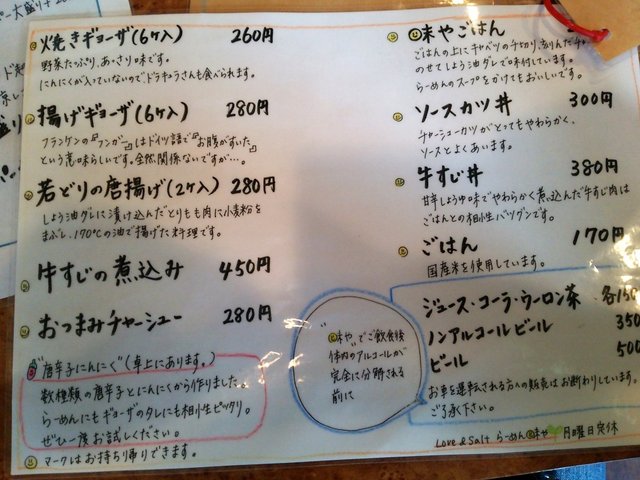 焼きギョーザ(6ヶ入) 260円
野菜たっぷり、あっさり味です。
にんにくが入っていないので、ドラキュラさんも食べられます。
揚げギョーザ(6ヶ入) 280円
フランケンの『フンガー』はドイツ語で『お腹がすいた』
という意味らしいです。全然関係ないですが…。
若どりの唐揚げ(2ヶ入) 280円
しょう油ダレに漬け込んだとりもも肉に小麦粉を
まぶし、170℃の油で揚げた料理です。
牛すじの煮込み 450円
おつまみチャーシュー 280円
唐辛子にんにく(卓上にあります。)
数種類の唐辛子とにんにくから作りました。
らーめんにもギョーザのタレにも相性ピッタリ。
ぜひ一度お試しください。
マークはお持ち帰りできます。
味やごはん
ごはんの上にキャベツの千切り、刻んだチャー
のせてしょう油ダレで味付けしています。
らーめんのスープをかけてもおいしいです。
ソースカツ丼 300円
チャーシューカツがとってもやわらかく、
ソースとよくあいます。
牛すじ丼 380円
甘辛しょうゆ味でやわらかく煮込んだ牛すじ肉は
ごはんとの相性バツグンです。
ごはん 170円
国産米を使用しています。
ジュース・コーラ・ウーロン茶 各150
ノンアルコールビール 350
ビール 500
お車を運転される方への販売はお断わりしています。
ご了承下さい。
味や"でご飲食後
体内のアルコールが
完全に分解される
前に
Love & Salt らーめん 味や 月曜日定休